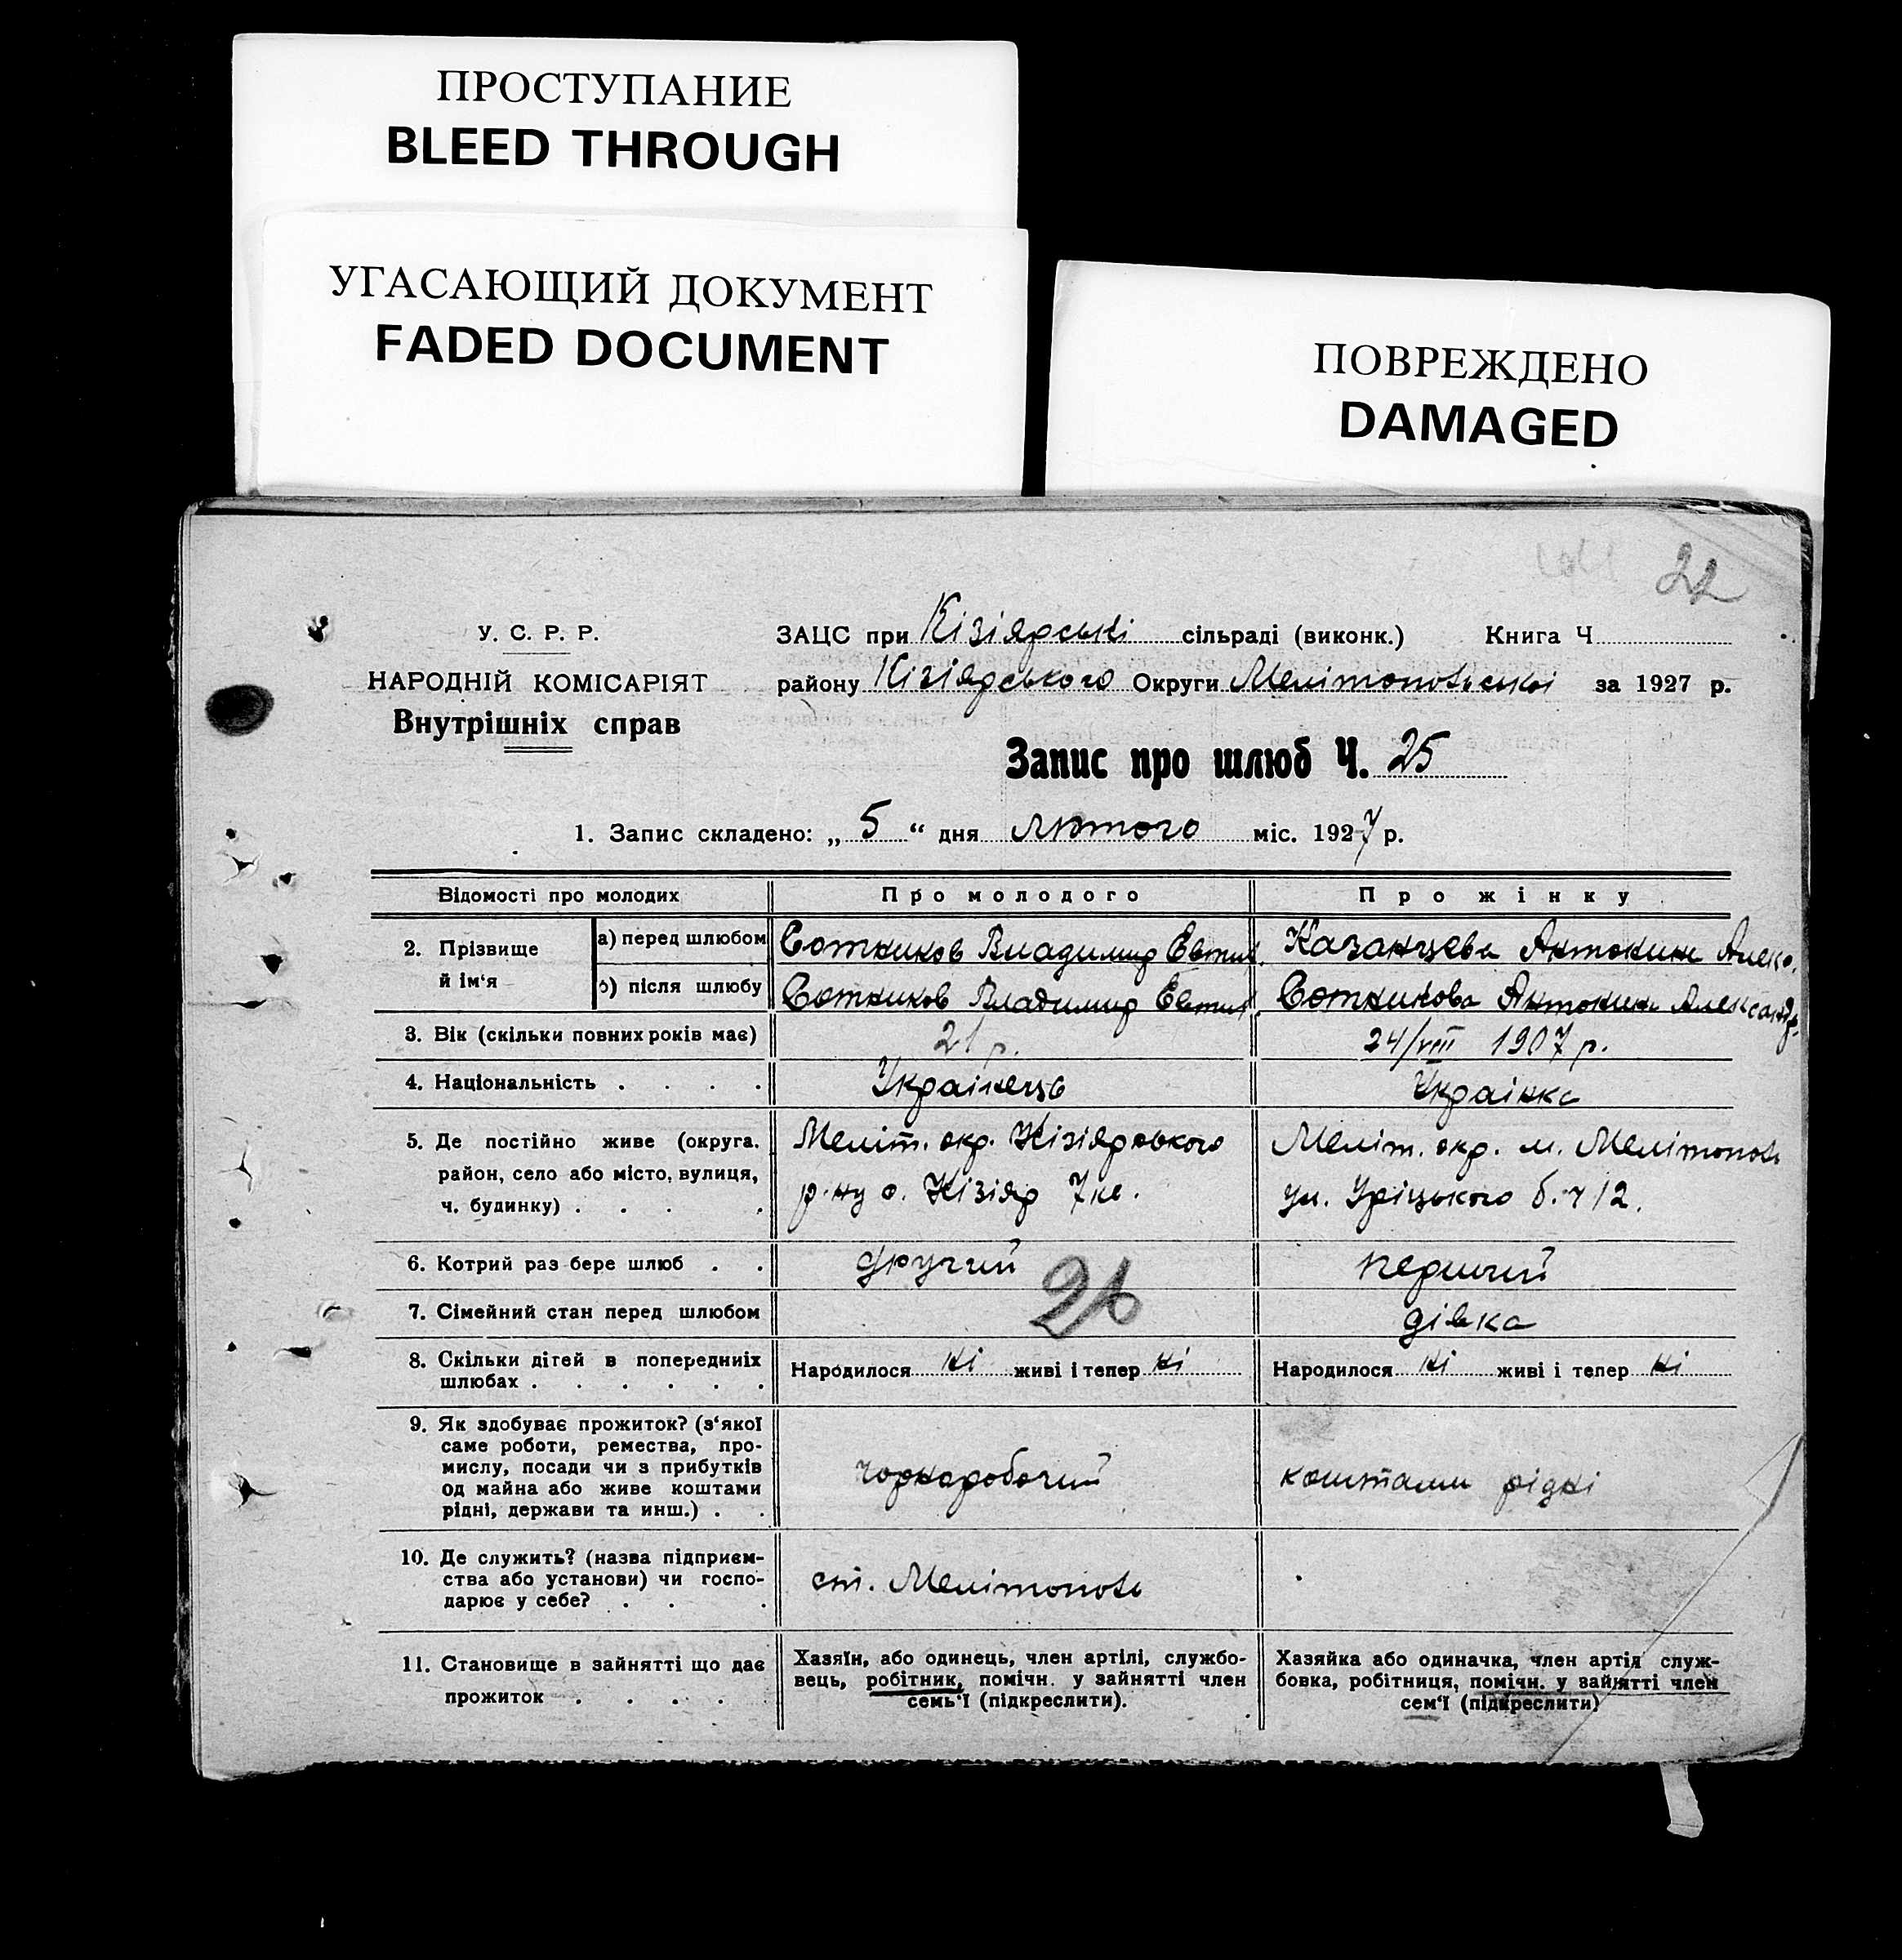 ПРОСТУПАНИЕ
BLEED THROUGH
УГАСАЮЩИЙ ДОКУМЕНТ
FADED DOCUMENT
ПОВРЕЖДЕНО
DAMAGED
22
У. С. Р. Р.
НАРОДНІЙ КОМІСАРІЯТ
Внутрішніх справ
ЗАЦС при Кізіярські сільраді (виконк.) Книга Ч
району Кізіярського Округи Мелітопольської за 1927 р.
Запис про шлюб Ч. 25
1. Запис складено: „ 5 “ дня лютого міс. 1927 р.
Відомості про молодих Про молодого Про жінку
2. Прізвище й ім‘я
а) перед шлюбом Сотников Владимир Евтих. Казанцева Антонина Алекс.
б) після шлюбу Сотников Владимир Евтих. Сотникова Антонина Александр.
3. Вік (скільки повних років має) 21 р. 24/VIII 1907 р.
4. Національність . . . . Українець Українка
5. Де постійно живе (округа, Меліт. окр. Кізіярського Меліт. окр. м. Мелітополь
район, село або місто, вулиця, р-ну с. Кізіяр ул. Уріцького б. ч 12.
ч. будинку) . . . .
6. Котрий раз бере шлюб . . другий перший
26
7. Сімейний стан перед шлюбом дівка
8. Скільки дітей в попередниіх Народилося ні живі і тепер ні Народилося ні живі і тепер ні
шлюбах . . . . . .
9. Як здобуває прожиток? (з‘якої
саме роботи, ремества, про-
мислу, посади чи з прибутків чорноробочий коштами рідні
од майна або живе коштами
рідні, держави та инш.) . .
10. Де служить? (назва підприєм-
ства або установи) чи госпо- ст. Мелітополь
дарює у себе? . . .
11. Становище в зайнятті що дає Хазяїн, або одинець, член артілі, службо- Хазяйка або одиначка, член артіл служ-
прожиток . . . . . вець, робітник, помічн. у зайнятті член бовка, робітниця, помічн. у зайнятті член
семь‘ї (підкреслити). сем‘ї (підкреслити)